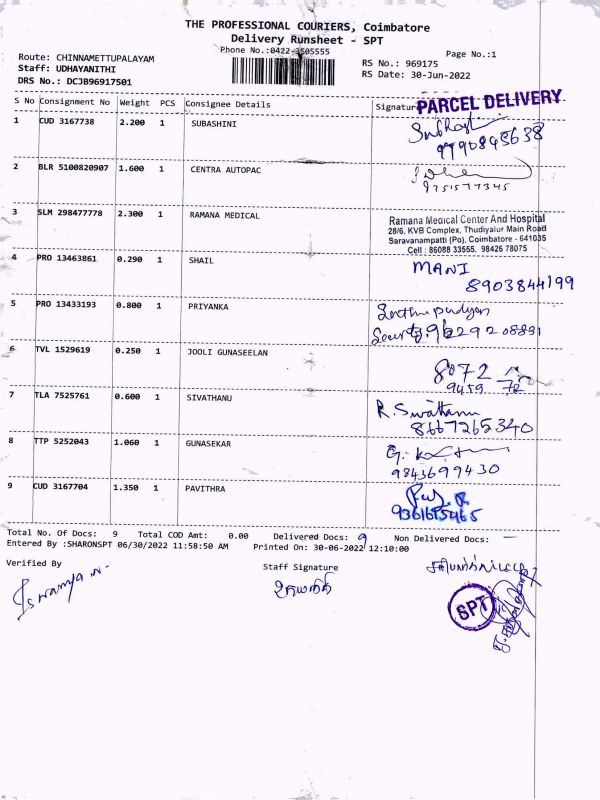 THE PROFESSIONAL COURIERS, Coimbatore
Delivery Runsheet - SPT
Phone No.:0422-3505555
Page No.:1
Route: CHINNAMETTUPALAYAM
RS No.: 969175
Staff: UDHAYANITHI
RS Date: 30-Jun-2022
DRS No.: DCJB96917501
S No Consignment No Weight PCS Consignee Details Signature
PARCEL DELIVERY
1 CUD 3167738 2.200 1 SUBASHINI
2 BLR 5100820907 1.600 1 CENTRA AUTOPAC
9751577345
3 SLM 298477778 2.300 1 RAMANA MEDICAL
Ramana Medical Center And Hospital
28/6, KVB Complex, Thudiyalur Main Road
Saravanampatti (Po), Coimbatore - 641035
Cell : 86088 33555, 98426 78075
4 PRO 13463861 0.290 1 SHAIL
MANI
8903844199
5 PRO 13433193 0.800 1 PRIYANKA
6 TVL 1529619 0.250 1 JOOLI GUNASEELAN
8072
9459 72
7 TLA 7525761 0.600 1 SIVATHANU
R. Swathanu
8667265340
8 TTP 5252043 1.060 1 GUNASEKAR
9843699430
9 CUD 3167704 1.350 1 PAVITHRA
9361615465
Total No. Of Docs: 9 Total COD Amt: 0.00 Delivered Docs: 9 Non Delivered Docs: —
Entered By :SHARONSPT 06/30/2022 11:58:50 AM Printed On: 30-06-2022 12:10:00
Verified By Staff Signature
உதயநிதி
SPT